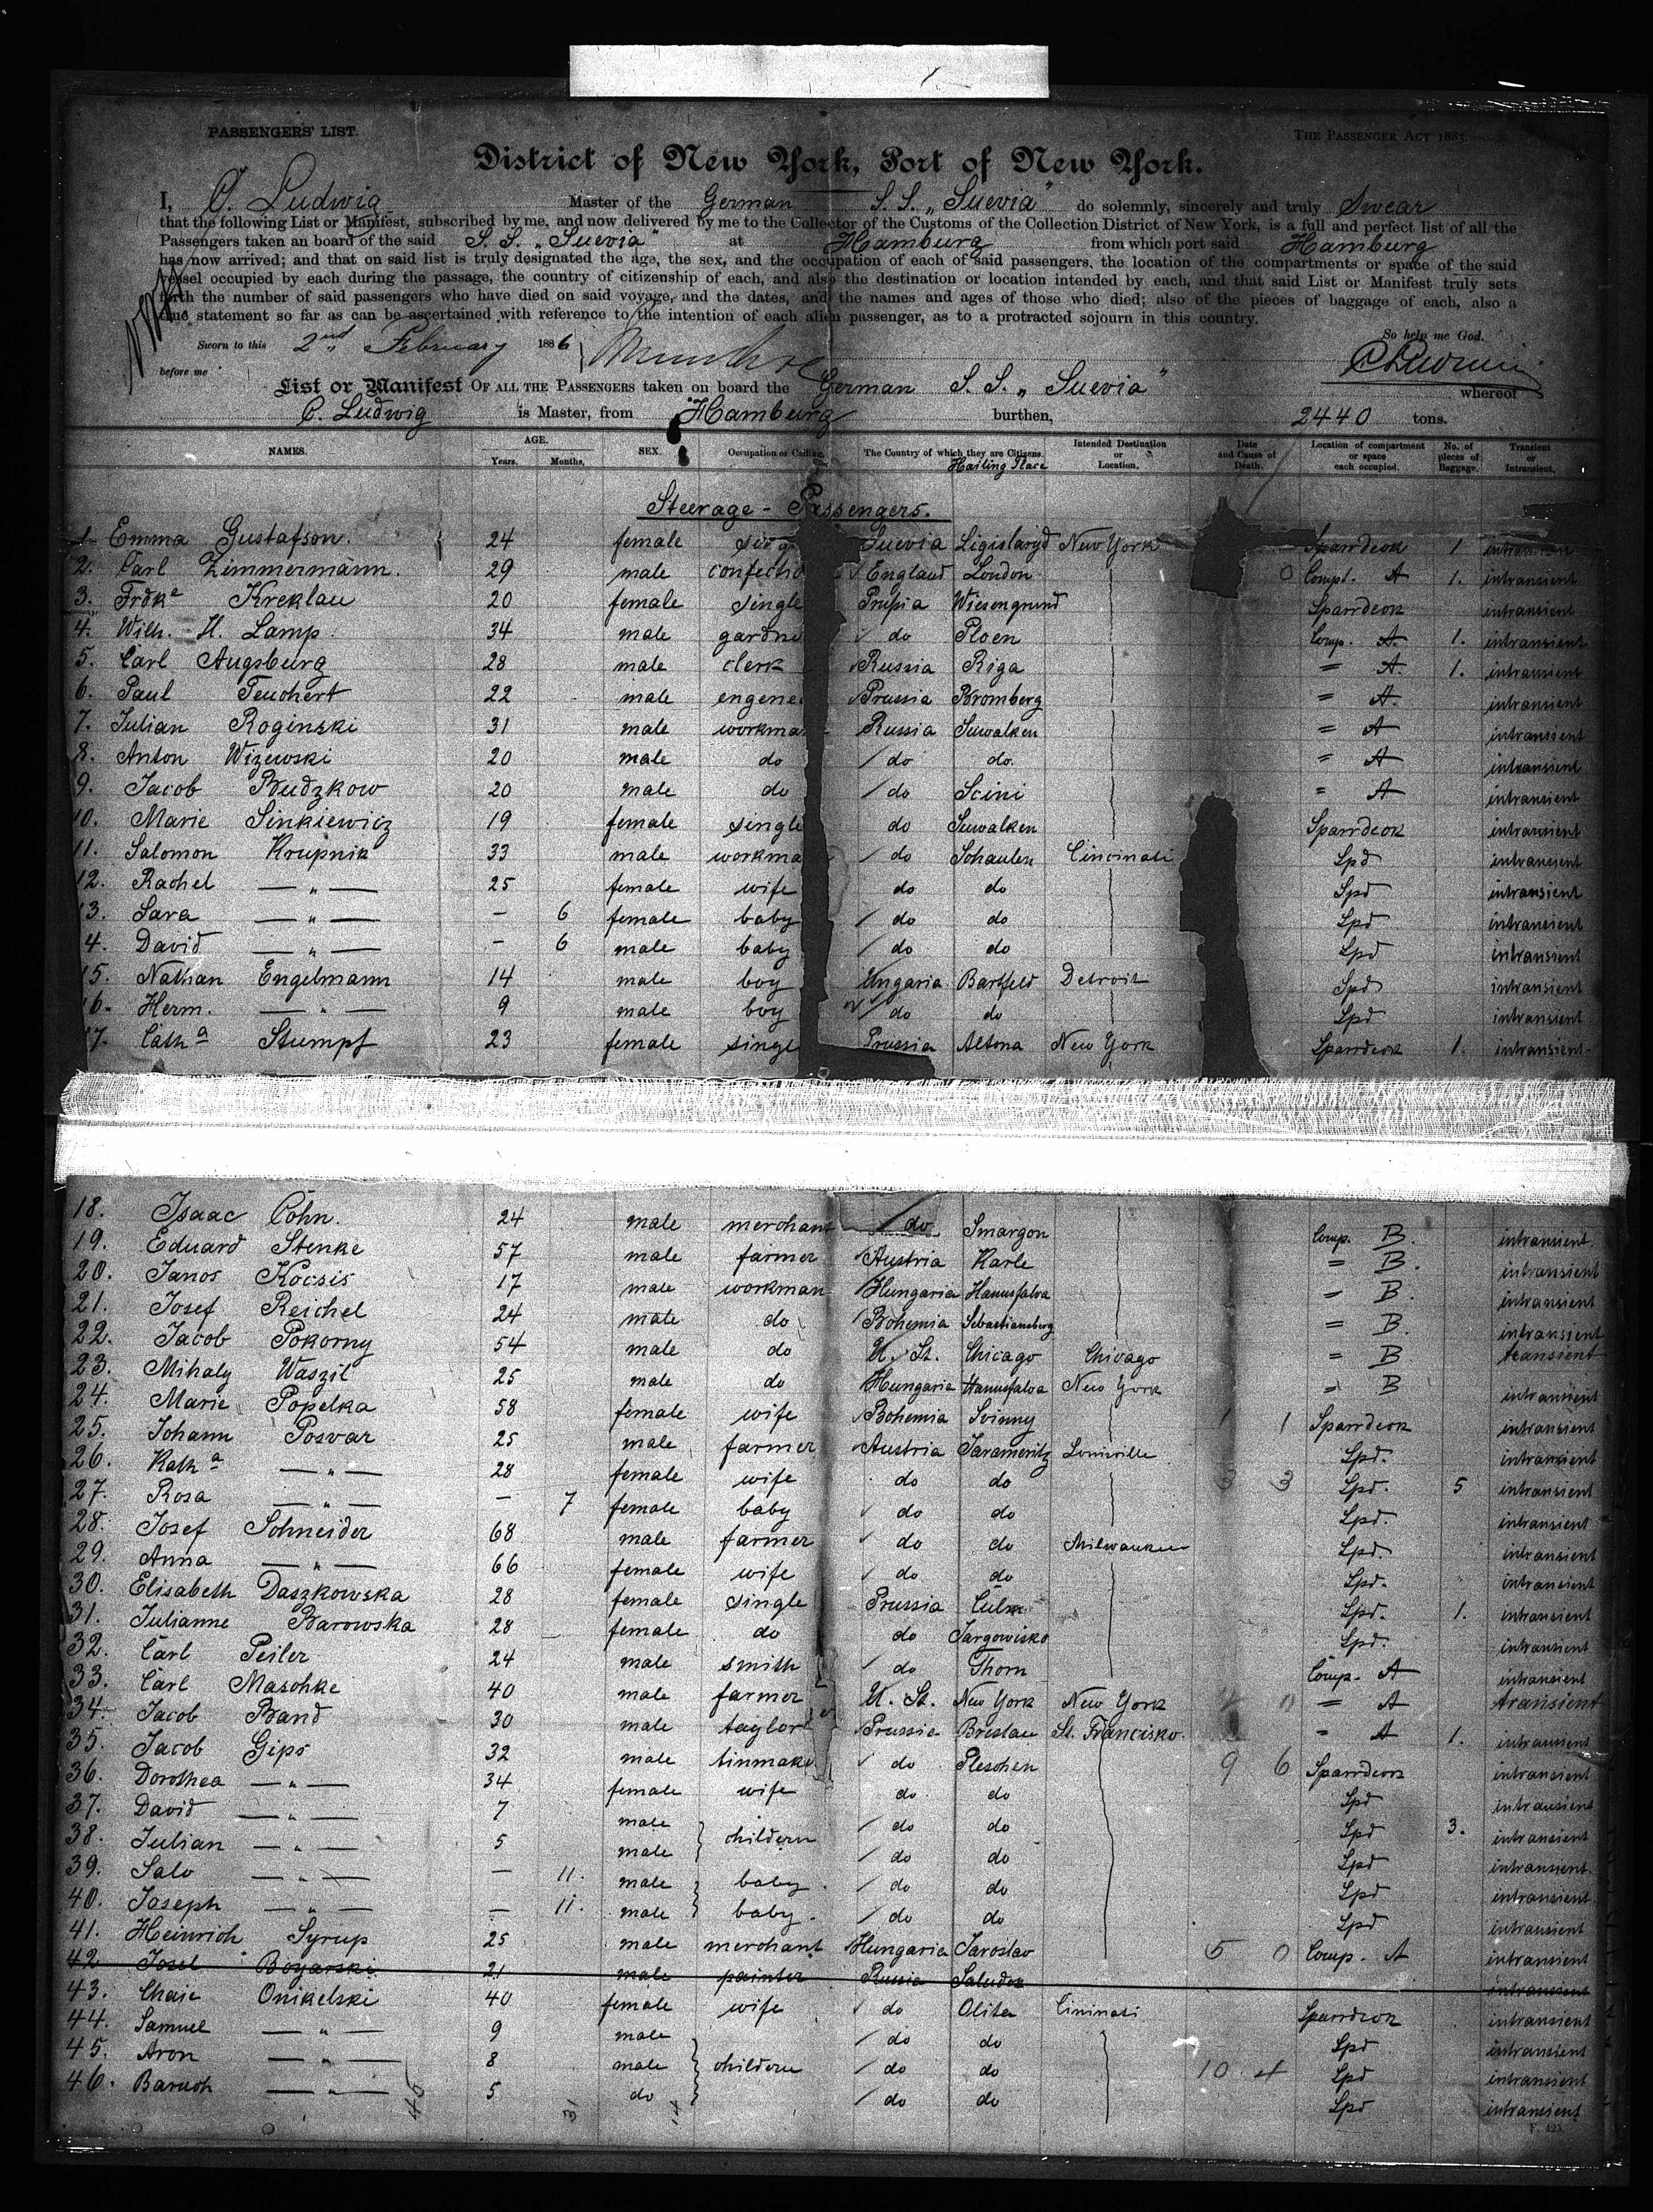 PASSENGERS' LIST.
THE PASSENGER ACT 1883.
District of New York, Port of New York.
I, C. Ludwig Master of the German S. S. „Suevia" do solemnly, sincerely and truly Swear
that the following List or Manifest, subscribed by me, and now delivered by me to the Collector of the Customs of the Collection District of New York, is a full and perfect list of all the
Passengers taken an board of the said S. S. „Suevia" at Hamburg from which port said Hamburg
has now arrived; and that on said list is truly designated the age, the sex, and the occupation of each of said passengers, the location of the compartments or space of the said
vessel occupied by each during the passage, the country of citizenship of each, and also the destination or location intended by each, and that said List or Manifest truly sets
forth the number of said passengers who have died on said voyage, and the dates, and the names and ages of those who died; also of the pieces of baggage of each, also a
true statement so far as can be ascertained with reference to the intention of each alien passenger, as to a protracted sojourn in this country.
So help me God.
Sworn to this 2nd February 1886
before me
List or Manifest OF ALL THE PASSENGERS taken on board the German S. S. „Suevia" whereof
C. Ludwig is Master, from Hamburg burthen, 2440 tons.
NAMES. AGE. Years. Months. SEX. Occupation or Calling. The Country of which they are Citizens. Hailing Place Intended Destination or Location. Date and Cause of Death. Location of compartment or space each occupied. No. of pieces of Baggage. Transient or Intransient.
Steerage - Passengers.
1. Emma Gustafson. 24 female Suevia New York Sparrdeck 1. intransient
2. Carl Zimmermann. 29 male confectio England London 0 Compt. A 1. intransient
3. Frdke Kreklau 20 female single Prussia Wiesengrund Sparrdeck intransient
4. Wilh. H. Lamp. 34 male gardne do Ploen Comp. A. 1. intransient
5. Carl Augsburg 28 male clerk Russia Riga = A. 1. intransient
6. Paul Teuchert 22 male engenee Prussia Bromberg = A. intransient
7. Julian Rogenski 31 male workma Russia Suwalken = A intransient
8. Anton Wizewski 20 male do do do. = A intransient
9. Jacob Budzkow 20 male do do Scini = A intransient
10. Marie Sinkiewicz 19 female single do Suwalken Sparrdeck intransient
11. Salomon Krupnik 33 male workma do Schaulen Cincinati Spd intransient
12. Rachel — „ — 25 female wife do do Spd intransient
13. Sara — „ — - 6 female baby do do Spd intransient
4. David — „ — - 6 male baby do do Spd intransient
15. Nathan Engelmann 14 male boy Ungaria Bartfeld Detroit Spd intransient
16. Herm. — „ — 9 male boy do do Spd intransient
17. Catha Stumpf 23 female single Prussia Altona New York Sparrdeck 1. intransient
18. Isaac Cohn. 24 male merchant do Smargon Comp. B. intransient
19. Eduard Stenke 57 male farmer Austria Karle = B. intransient
20. Janos Kocsis 17 male workman Hungaria Hanusfalva = B. intransient
21. Josef Reichel 24 male do Bohemia Sebastiansberg = B. intransient
22. Jacob Pokorny 54 male do U. St. Chicago Chicago = B transient
23. Mihaly Waszil 25 male do Hungaria Hanusfalva New York = B intransient
24. Marie Popelka 58 female wife Bohemia Svinny 1 1 Sparrdeck intransient
25. Johann Posvar 25 male farmer Austria Jarameritz Louisville Spd. intransient
26. Katha — „ — 28 female wife do do 3 3 Spd. 5 intransient
27. Rosa — „ — - 7 female baby do do Spd. intransient
28. Josef Schneider 68 male farmer do do Milwaukee Spd. intransient
29. Anna — „ — 66 female wife do do Spd. intransient
30. Elisabeth Daszkowska 28 female single Prussia Culm Spd. 1. intransient
31. Julianne Barowska 28 female do do Targowisko Spd. intransient
32. Carl Peiler 24 male smith do Thorn Comp. A intransient
33. Carl Maschke 40 male farmer U. St. New York New York 4 0 = A transient
34. Jacob Band 30 male taylor Prussia Breslau St. Francisko. = A 1. intransient
35. Jacob Gips 32 male tinmake do Pleschen 9 6 Sparrdeck intransient
36. Dorothea — „ — 34 female wife do do Spd intransient
37. David — „ — 7 male childern do do Spd 3. intransient
38. Julian — „ — 5 male do do Spd intransient
39. Salo — „ — - 11. male baby. do do Spd intransient
40. Joseph — „ — - 11. male baby. do do Spd intransient
41. Heinrich Syrup 25 male merchant Hungaria Jaroslav 5 0 Comp. A intransient
42 Josel Boyarski 21 male painter Russia intransient
43. Chaie Onikelski 40 female wife do Olita Cininati Sparrdeck intransient
44. Samuel — „ — 9 male do do Spd intransient
45. Aron — „ — 8 male childern do do 10 4 Spd intransient
46. Baruch — „ — 5 do do do Spd intransient
45 31 14